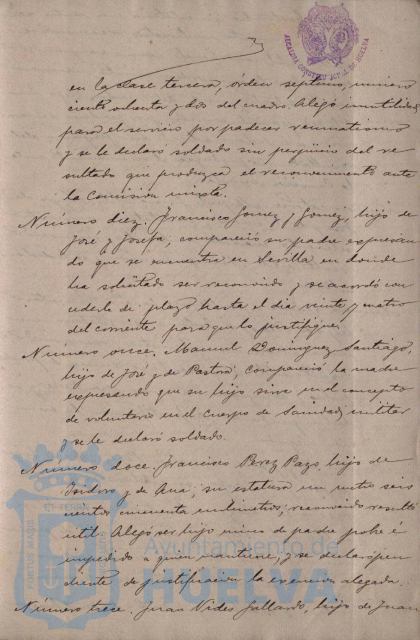 ALCALDIA CONSTITUCIONAL DE HUELVA
en la clase tercera, órden septimo, número
ciento ochenta y dos del cuadro. Alegó inutilidad
para el servicio por padecer reumatismo
y se le declaró soldado sin perjuicio del re
sultado que produzca el reconocimiento ante
la Comision mixta.
Número diez. Francisco Gomez y Gomez, hijo de
José y Josefa, compareció su padre expresan
do que se encuentra en Sevilla en donde
ha solicitado ser reconocido y se acordó con
cederle de plazo hasta el dia veinte y cuatro
del corriente para que lo justifique.
Número once, Manuel Dominguez Santiago,
hijo de José y de Pastora, compareció la madre
expresando que su hijo sirve en el concepto
de voluntario en el cuerpo de Sanidad militar
y se le declaró soldado.
Número doce. Francisco Perez Pazo, hijo de
Isidoro y de Ana; su estatura un metro seis
cientos cincuenta milimetros; reconocido resultó
útil. Alegó ser hijo único de padre pobre é
impedido a quien mantiene, y se declaró pen
diente de justificacion la exencion alegada.
Número trece. Juan Vides Gallardo, hijo de Juan
Ayuntamiento de
HUELVA